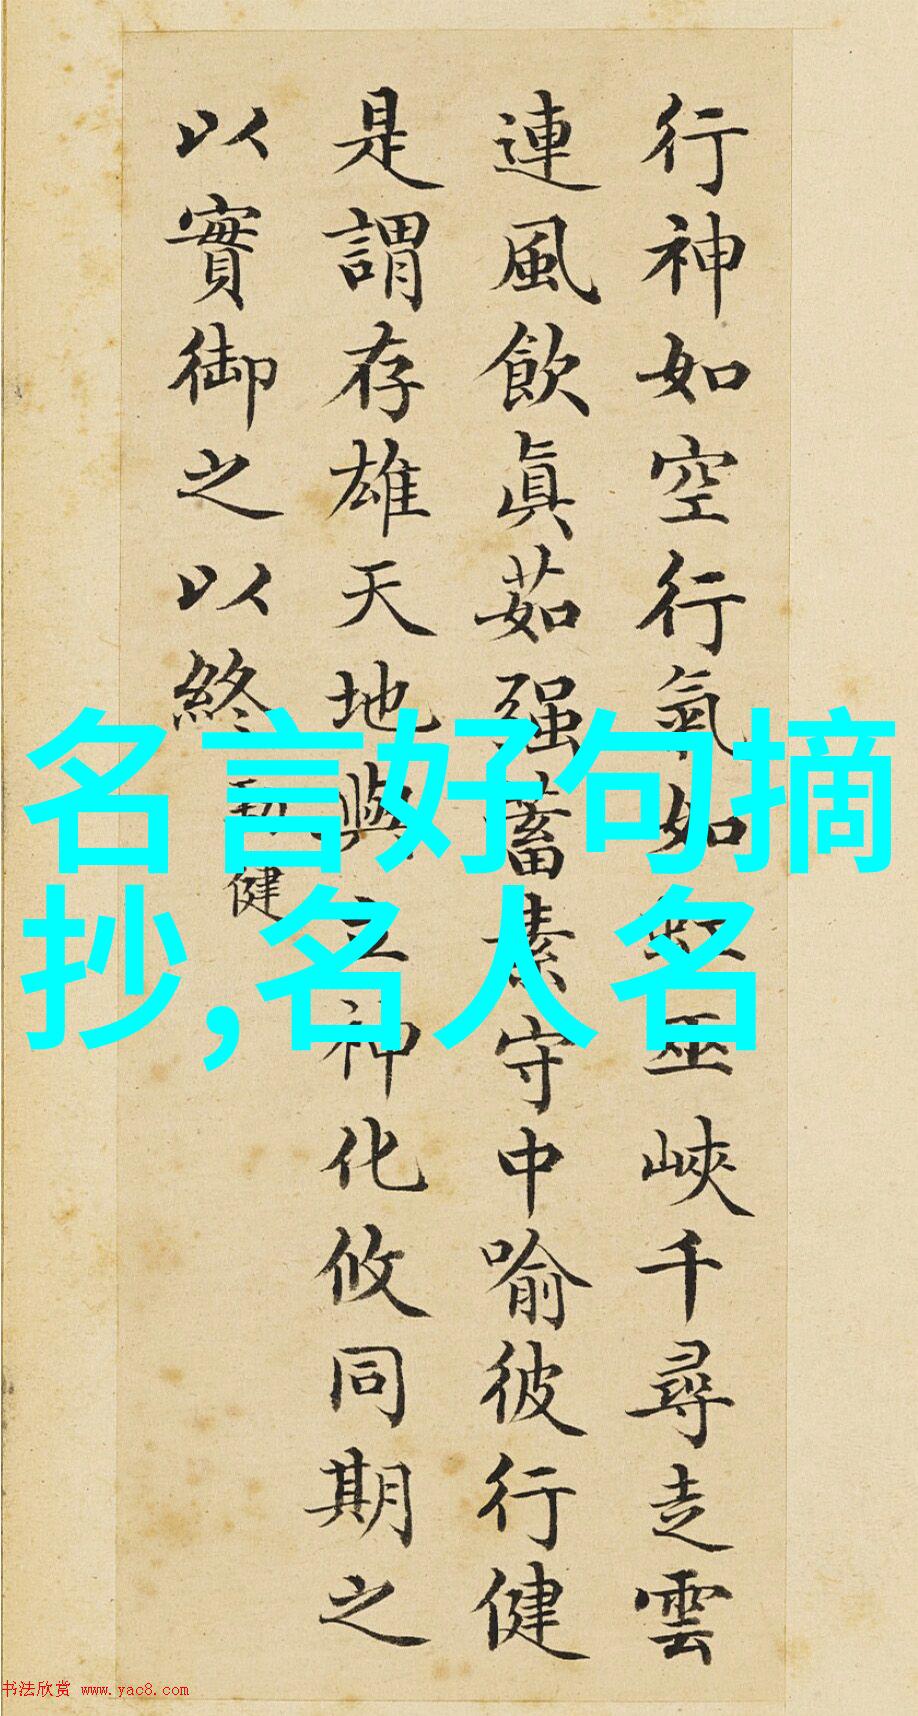 行神如空行氣如虹巫峽千尋走雲
連風飲眞茹强蓄素守中喻彼行健
是謂存雄天地與立神化攸同期之
以實御之以終
勁健
名言好句摘
抄,名人名
书法欣赏 www.yac8.com